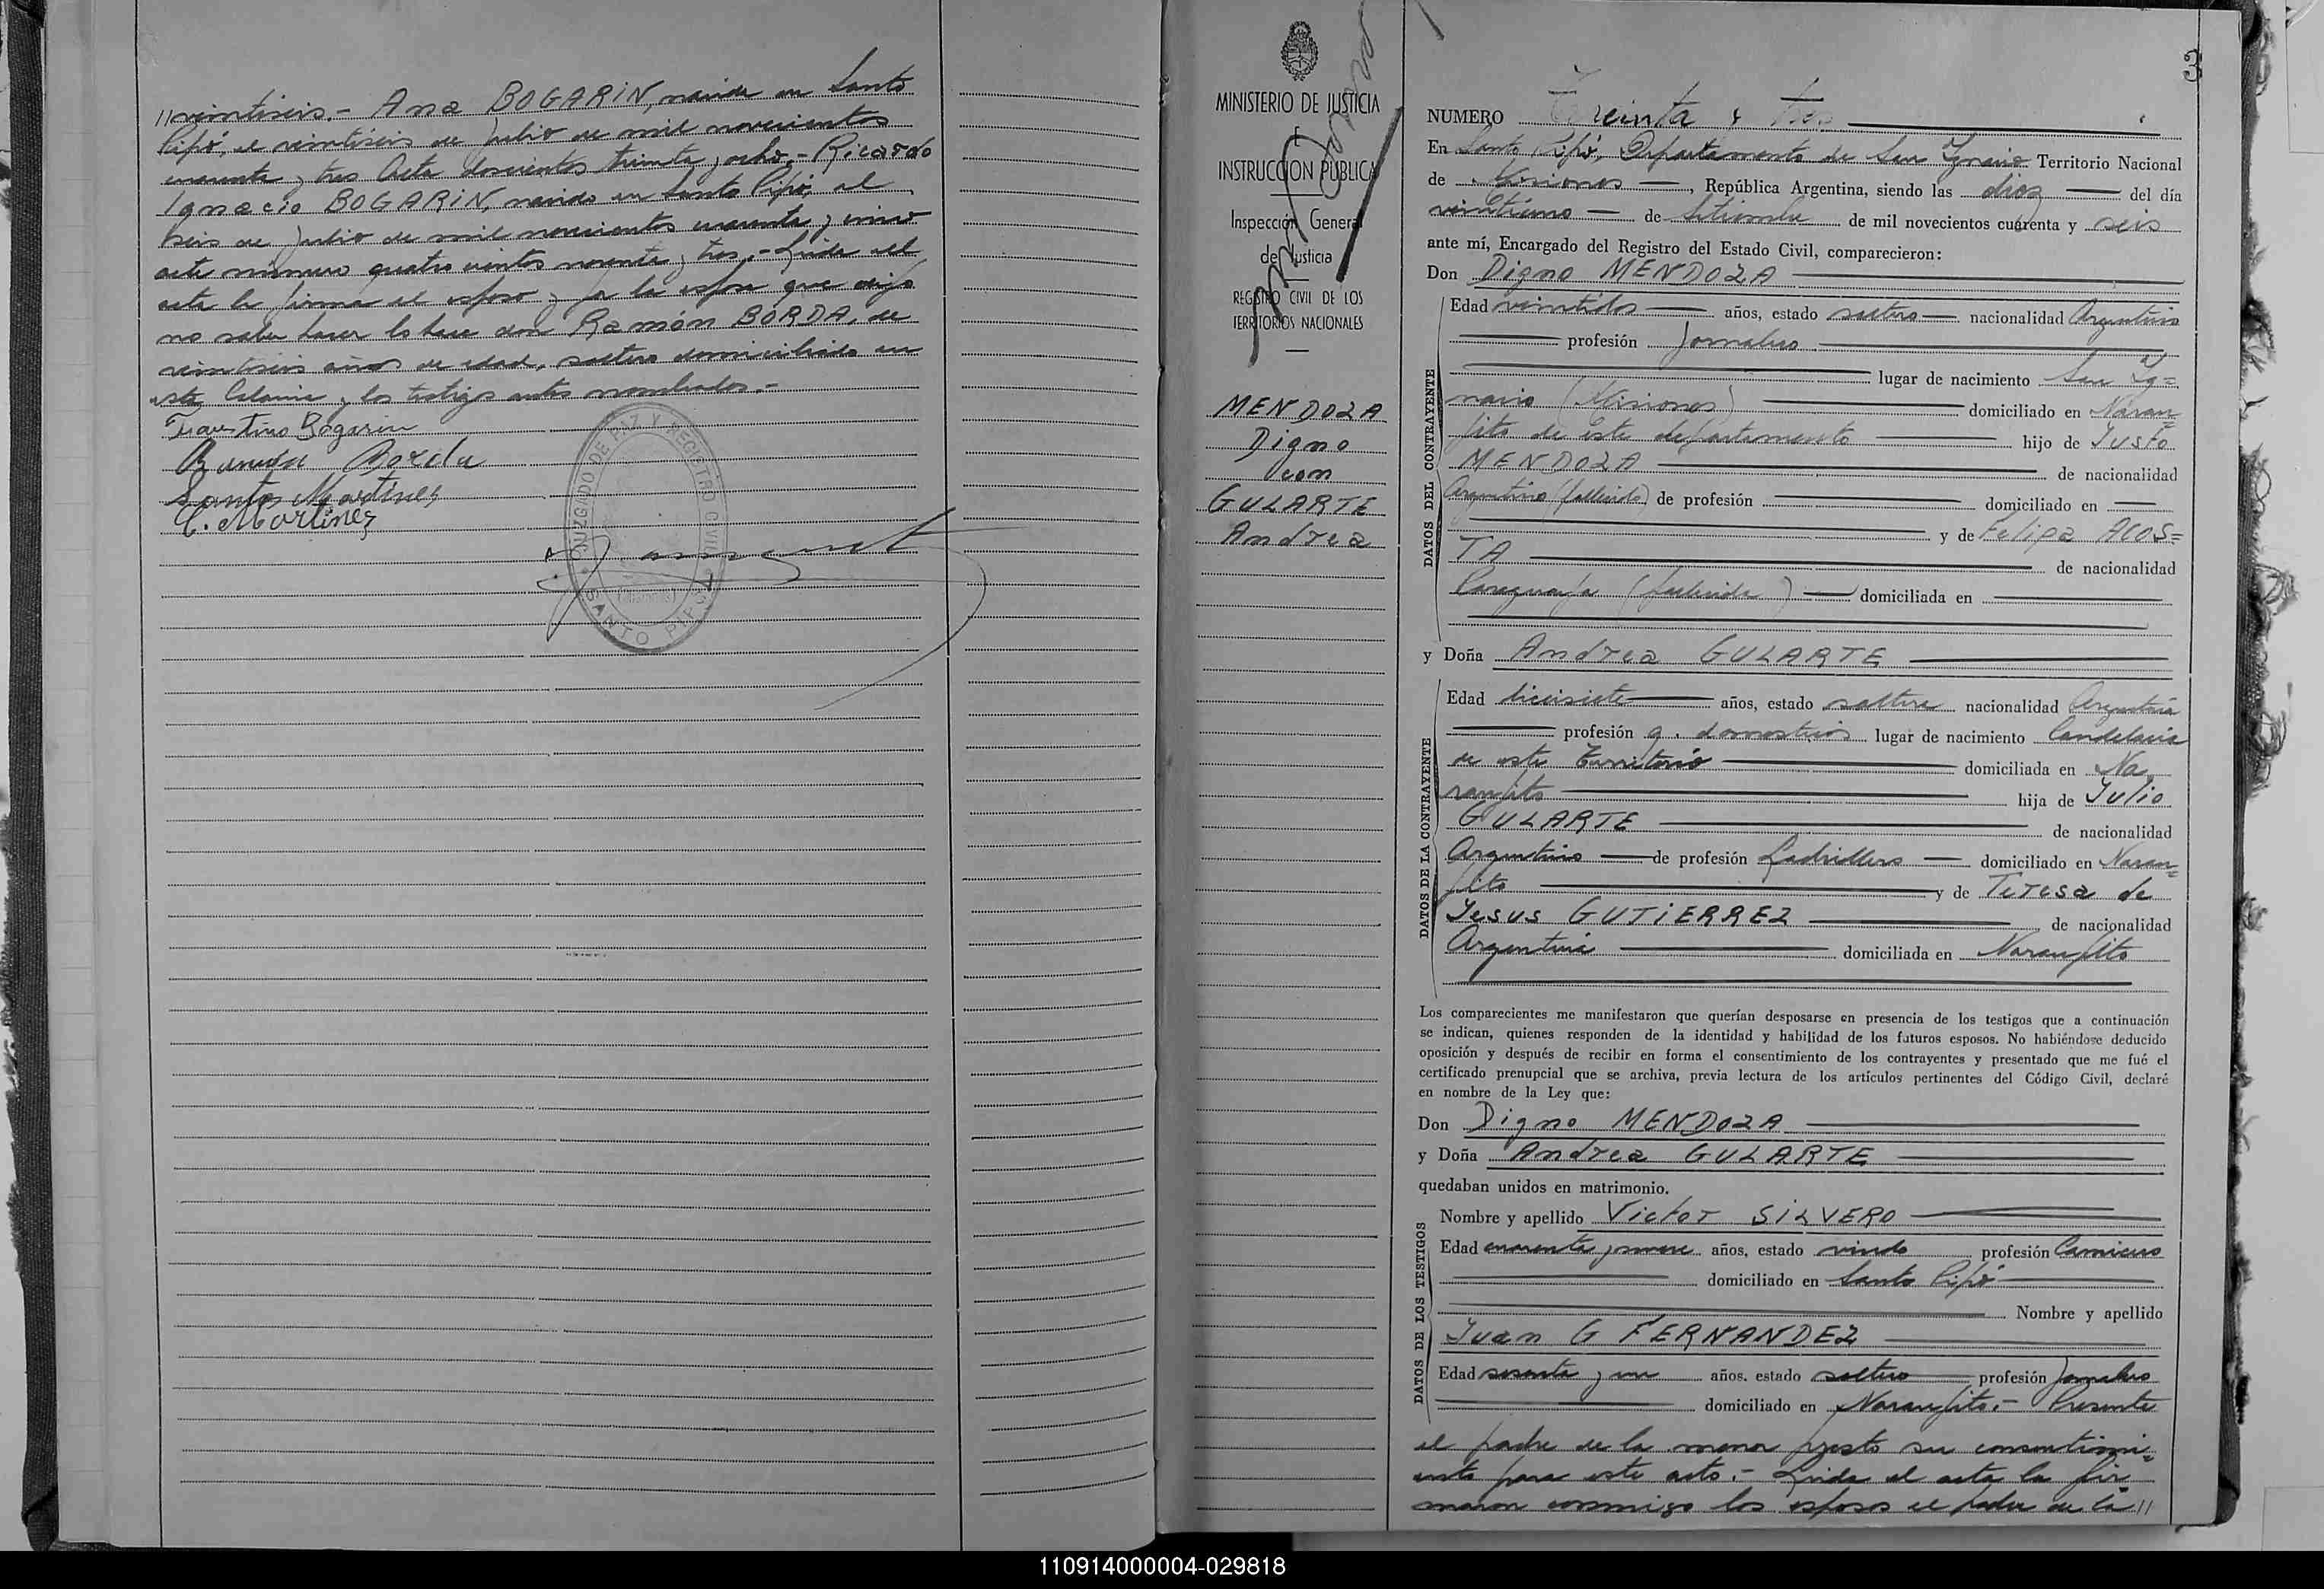 //veintiseis.- Ana BOGARIN, nacida en Santo
Pipó, el veintiseis de Julio de mil novecientos
cuarenta y tres Acta doscientos treinta y ocho.- Ricardo
Ignacio BOGARIN, nacido en Santo Pipó, el
seis de Julio de mil novecientos cuarenta y cinco
acta numero quatro cientos noventa y tres.- Leida el
acta la firma el esposo y por la esposa que dijo
no saber hacer lo hace don Ramón BORDA, de
veintiseis años de edad, soltero domiciliado en
esta Colonia y los testigos antes nombrados.-
Faustino Bogarin
Ramón Borda
Santos Martines
C. Martinez
JUZGADO DE PAZ Y REGISTRO CIVIL
SANTO PIPÓ
(Misiones)
MINISTERIO DE JUSTICIA
E
INSTRUCCION PUBLICA
Inspección General
de Justicia
REGISTRO CIVIL DE LOS
TERRITORIOS NACIONALES
MENDOZA
Digno
con
GULARTE
Andrea
3
NUMERO Treinta y Tres
En Santo Pipó, Departamento de San Ignacio Territorio Nacional
de Misiones, República Argentina, siendo las diez del día
veintiuno de Setiembre de mil novecientos cuarenta y seis
ante mí, Encargado del Registro del Estado Civil, comparecieron:
Don Digno MENDOZA
DATOS DEL CONTRAYENTE
Edad veintidos años, estado soltero nacionalidad Argentino
profesión Jornalero
lugar de nacimiento San Ig=
nacio (Misiones) domiciliado en Naran
jito de este departamento hijo de Justo
MENDOZA de nacionalidad
Argentino (fallecido) de profesión domiciliado en
y de Felipa ACOS=
TA de nacionalidad
Paraguaya (fallecida) domiciliada en
y Doña Andrea GULARTE
DATOS DE LA CONTRAYENTE
Edad diecisiete años, estado soltera nacionalidad Argentina
profesión q. domesticos lugar de nacimiento Candelaria
de este Territorio domiciliada en Na
ranjito hija de Julio
GULARTE de nacionalidad
Argentino de profesión Ladrillero domiciliado en Naran=
jito y de Teresa de
Jesus GUTIERREZ de nacionalidad
Argentina domiciliada en Naranjito
Los comparecientes me manifestaron que querían desposarse en presencia de los testigos que a continuación
se indican, quienes responden de la identidad y habilidad de los futuros esposos. No habiéndose deducido
oposición y después de recibir en forma el consentimiento de los contrayentes y presentado que me fué el
certificado prenupcial que se archiva, previa lectura de los artículos pertinentes del Código Civil, declaré
en nombre de la Ley que:
Don Digno MENDOZA
y Doña Andrea GULARTE
quedaban unidos en matrimonio.
DATOS DE LOS TESTIGOS
Nombre y apellido Victor SILVERO
Edad cuarenta y nueve años, estado viudo profesión Carnicero
domiciliado en Santo Pipó
Nombre y apellido
Juan G FERNANDEZ
Edad sesenta y un años. estado soltero profesión Jornalero
domiciliado en Naranjito.- Presente
el padre de la menor presto su consentimi=
ento para este acto.- Leida el acta la fir
maron conmigo los esposos el padre de la //
110914000004-029818